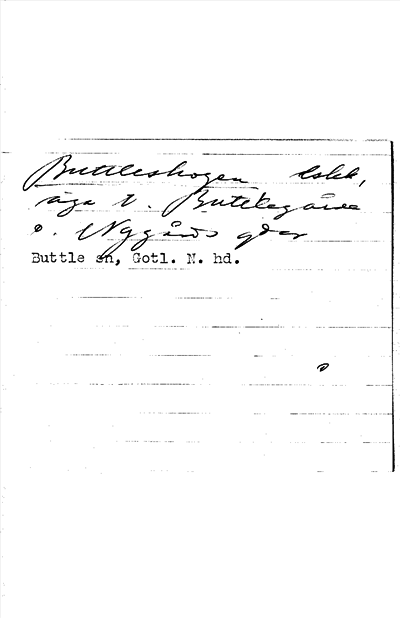 Buttleskogen bskk,
äga t. Buttlegårde
o. Nygårds gdar
Buttle sn, Gotl. N. hd.